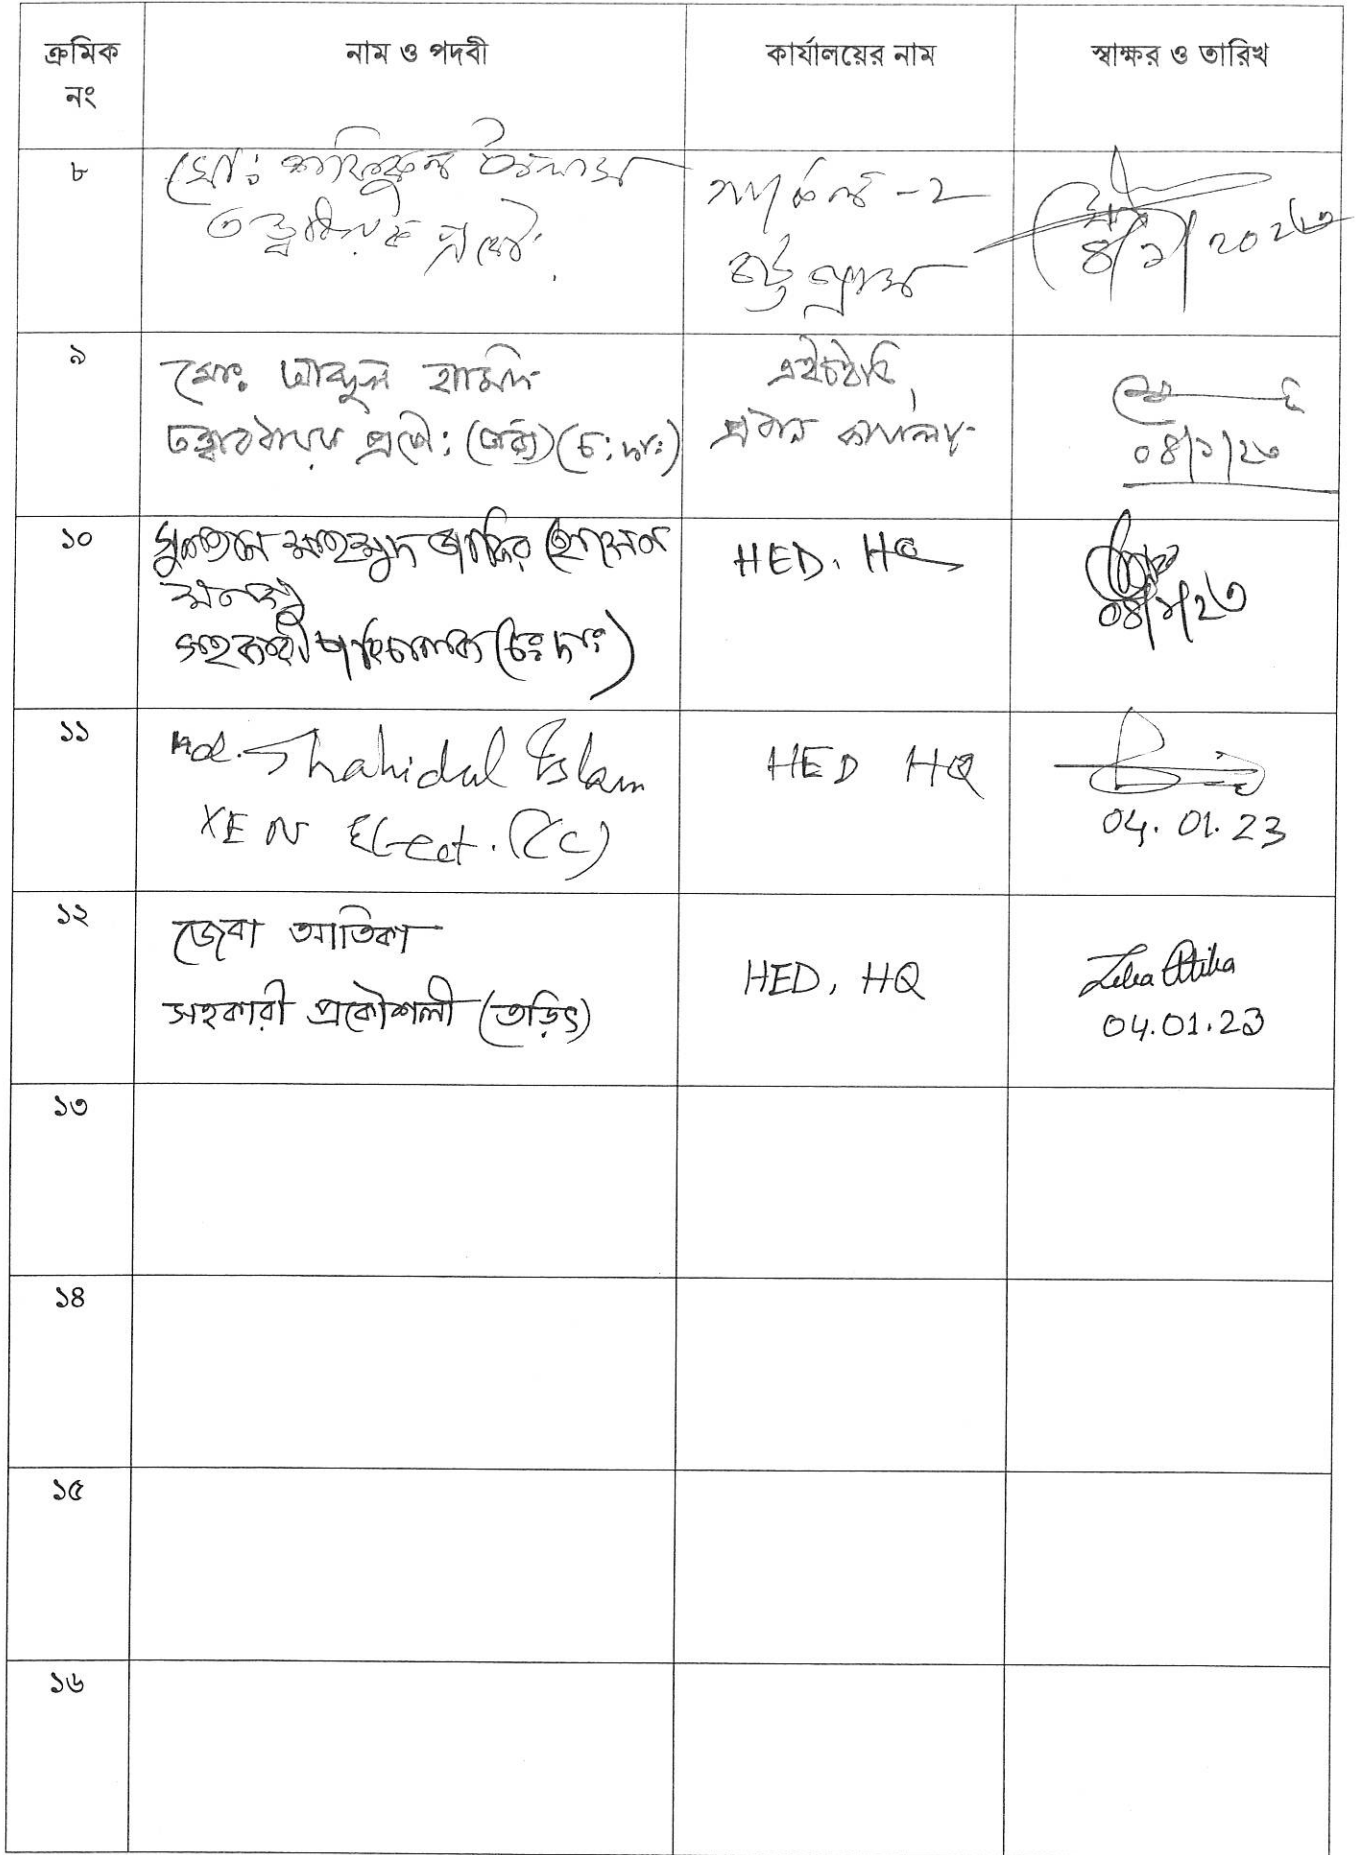 ক্রমিক নং
নাম ও পদবী
কার্যালয়ের নাম
স্বাক্ষর ও তারিখ
৮
মোঃ ইসলাম
তত্ত্বাবধায়ক প্রকৌ:
সার্কেল -২
চট্টগ্রাম
৪/১/২০২৩
৯
মোঃ আব্দুল হামিদ
তত্ত্বাবধায়ক প্রকৌ: (চ: দাঃ)
এইচইডি,
প্রধান কার্যালয়
০৪/১/২৩
১০
সুলতান মাহমুদ হোসেন
সহকারী পরিচালক (চঃ দাঃ)
HED, HQ
০৪/১/২৩
১১
Md. Shahidul Islam
XEN Elect. (CC)
HED HQ
04.01.23
১২
জেবা আতিকা
সহকারী প্রকৌশলী (তড়িৎ)
HED, HQ
Zeba Atika
04.01.23
১৩
১৪
১৫
১৬